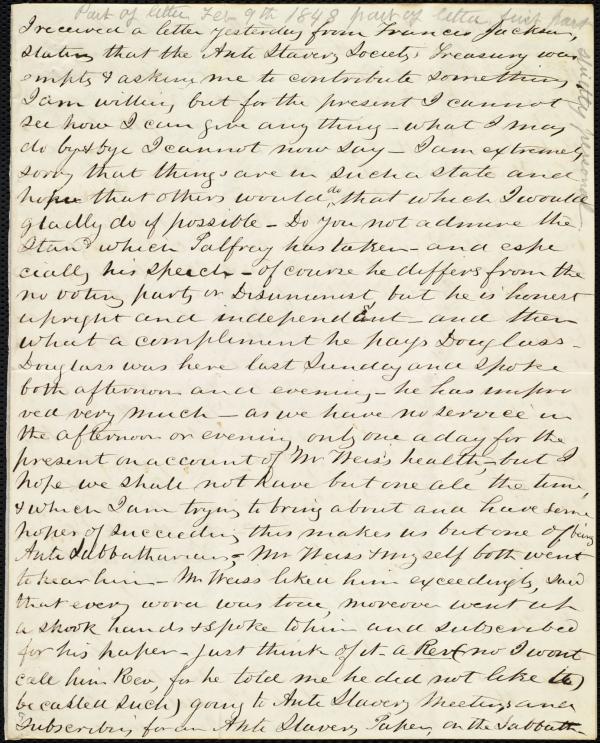 Part of letter Feb 9th 1848 part of letter, first part
strictly personal
I received a letter yesterday from Francis Jackson,
stating that the Ante Slavery Society's Treasury was
empty & asking me to contribute something
I am willing but for the present I cannot
see how I can give any thing - what I may
do by & bye I cannot now say - I am extremely
sorry that things are in such a state and
hope that others would do, that which I would
gladly do if possible - Do you not admire the
Stand which Palfrey has taken - and espe
cially his speech - of course he differs from the
no voting party or Disunionist, but he is honest
upright and independent - and then
what a compliment he pays Douglass -
Douglass was here last Sunday and spoke
both afternoon and evening - he has impro
ved very much - as we have no service in
the afternoon or evening, only one a day for the
present on account of Mr Weiss's health, - but I
hope we shall not have but one all the time,
& which I am trying to bring about and have some
hopes of succeeding this makes us but one of being
Ante Sabbatharians, - Mr Weiss & myself both went
to hear him - Mr Weiss liked him exceedingly, said
that every word was true, moreover went up
a shook hands & spoke to him and subscribed
for his paper - just think of it - a Rev (no I wont
call him Rev, for he told me he did not like to
be called such) going to Ante Slavery Meetings and
Subscribing for an Ante Slavery Paper, on the Sabbath -